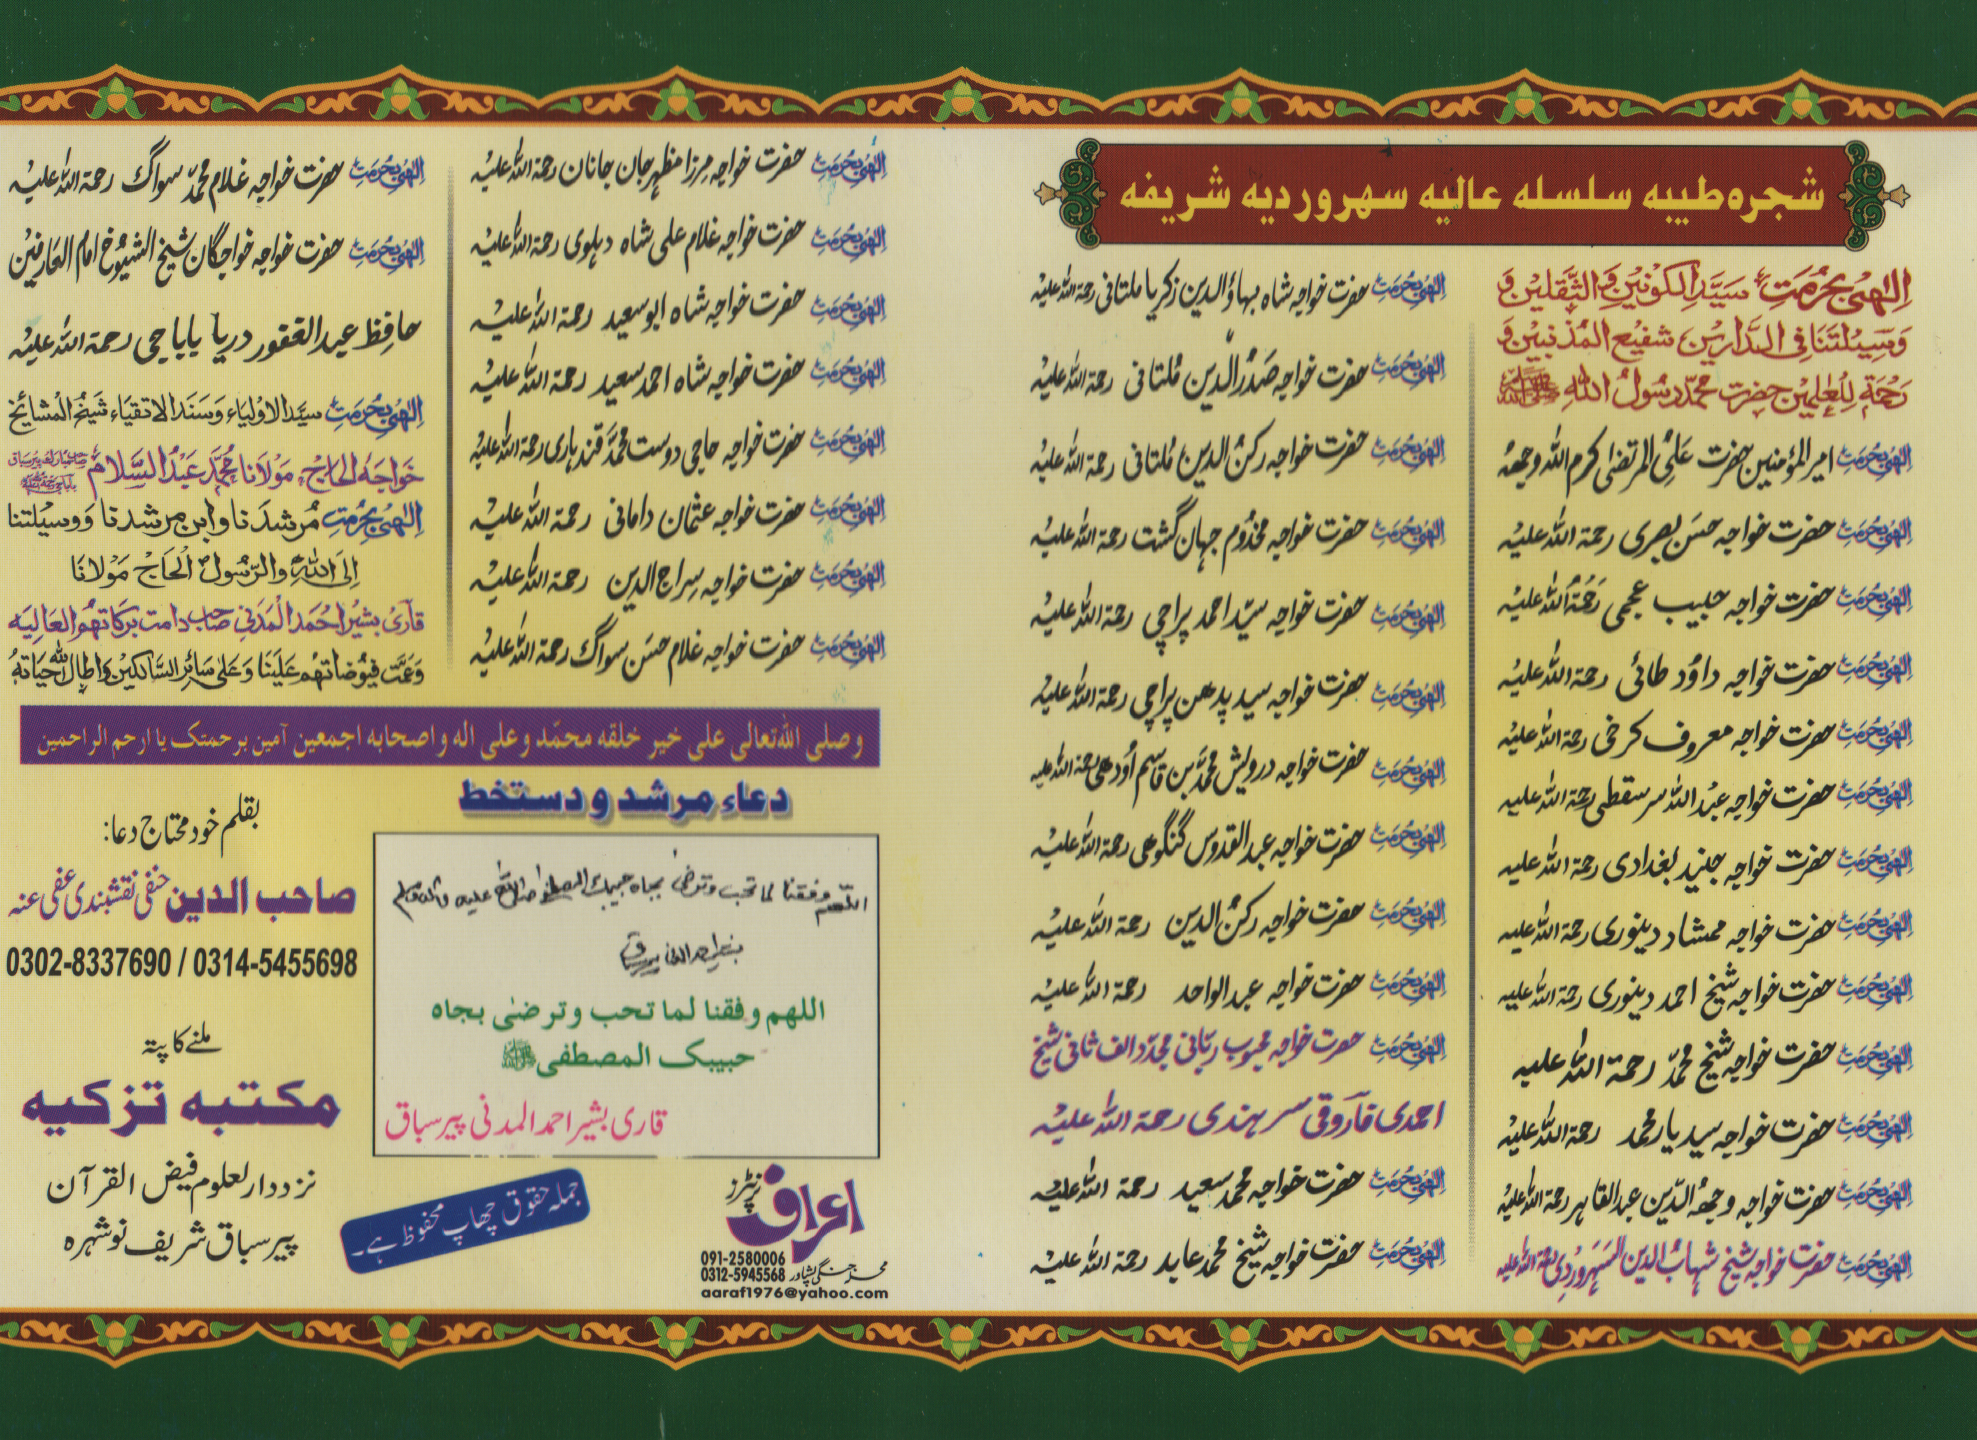 شجرہ طیبہ سلسلہ عالیہ سہروردیہ شریفہ
اِلٰھِیْ بِحُرْمَتِ سَیَّدِ الْکَوْنَیْنِ وَالثَّقَلَیْنِ وَ
وَسِیْلَتَنَا فِی الدَّارَیْنِ شَفِیْعِ الْمُذْنِبِیْنَ وَ
رَحْمَۃٍ لِّلْعٰلَمِیْنَ حضرت محمّد رسولُ اللہِ ﷺ
اِلٰھِیْ بِحُرْمَتِ امیر المؤمنین حضرت علیُ المرتضیٰ کرم اللہ وجھہٗ
اِلٰھِیْ بِحُرْمَتِ حضرت خواجہ حسن بصری رحمۃ اللہ علیہ
اِلٰھِیْ بِحُرْمَتِ حضرت خواجہ حبیب عجمی رحمۃ اللہ علیہ
اِلٰھِیْ بِحُرْمَتِ حضرت خواجہ داؤد طائی رحمۃ اللہ علیہ
اِلٰھِیْ بِحُرْمَتِ حضرت خواجہ معروف کرخی رحمۃ اللہ علیہ
اِلٰھِیْ بِحُرْمَتِ حضرت خواجہ عبد اللہ سر سقطی رحمۃ اللہ علیہ
اِلٰھِیْ بِحُرْمَتِ حضرت خواجہ جنید بغدادی رحمۃ اللہ علیہ
اِلٰھِیْ بِحُرْمَتِ حضرت خواجہ ممشاد دینوری رحمۃ اللہ علیہ
اِلٰھِیْ بِحُرْمَتِ حضرت خواجہ شیخ احمد دینوری رحمۃ اللہ علیہ
اِلٰھِیْ بِحُرْمَتِ حضرت خواجہ شیخ محمّد رحمۃ اللہ علیہ
اِلٰھِیْ بِحُرْمَتِ حضرت خواجہ سید یار محمد رحمۃ اللہ علیہ
اِلٰھِیْ بِحُرْمَتِ حضرت خواجہ وجھہُ الدّین عبد القاہر رحمۃ اللہ علیہ
اِلٰھِیْ بِحُرْمَتِ حضرت خواجہ شیخ شہابُ الدین السہروردی رحمۃ اللہ علیہ
اِلٰھِیْ بِحُرْمَتِ حضرت خواجہ شاہ بہاؤالدین زکریا ملتانی رحمۃ اللہ علیہ
اِلٰھِیْ بِحُرْمَتِ حضرت خواجہ صَدرُ الّدین مُلتانی رحمۃ اللہ علیہ
اِلٰھِیْ بِحُرْمَتِ حضرت خواجہ رکنُ الدین مُلتانی رحمۃ اللہ علیہ
اِلٰھِیْ بِحُرْمَتِ حضرت خواجہ مخدُوم جہان گشت رحمۃ اللہ علیہ
اِلٰھِیْ بِحُرْمَتِ حضرت خواجہ سیّد احمد پراچی رحمۃ اللہ علیہ
اِلٰھِیْ بِحُرْمَتِ حضرت خواجہ سید پدھن پراچی رحمۃ اللہ علیہ
اِلٰھِیْ بِحُرْمَتِ حضرت خواجہ درویش محمّد بن قاسم اُودھی رحمۃ اللہ علیہ
اِلٰھِیْ بِحُرْمَتِ حضرت خواجہ عبد القدوس گنگوھی رحمۃ اللہ علیہ
اِلٰھِیْ بِحُرْمَتِ حضرت خواجہ رکنُ الدین رحمۃ اللہ علیہ
اِلٰھِیْ بِحُرْمَتِ حضرت خواجہ عبد الواحد رحمۃ اللہ علیہ
اِلٰھِیْ بِحُرْمَتِ حضرت خواجہ محبوب ربّانی مجدّد الف ثانی شیخ
احمدی فاروقی سرہندی رحمۃ اللہ علیہ
اِلٰھِیْ بِحُرْمَتِ حضرت خواجہ محمد سعید رحمۃ اللہ علیہ
اِلٰھِیْ بِحُرْمَتِ حضرت خواجہ شیخ محمد عابد رحمۃ اللہ علیہ
اِلٰھِیْ بِحُرْمَتِ حضرت خواجہ مرزا مظہر جان جانان رحمۃ اللہ علیہ
اِلٰھِیْ بِحُرْمَتِ حضرت خواجہ غلام علی شاہ دہلوی رحمۃ اللہ علیہ
اِلٰھِیْ بِحُرْمَتِ حضرت خواجہ شاہ ابو سعید رحمۃ اللہ علیہ
اِلٰھِیْ بِحُرْمَتِ حضرت خواجہ شاہ احمد سعید رحمۃ اللہ علیہ
اِلٰھِیْ بِحُرْمَتِ حضرت خواجہ حاجی دوست محمّد قندہاری رحمۃ اللہ علیہ
اِلٰھِیْ بِحُرْمَتِ حضرت خواجہ عثمان دامانی رحمۃ اللہ علیہ
اِلٰھِیْ بِحُرْمَتِ حضرت خواجہ سراج الدین رحمۃ اللہ علیہ
اِلٰھِیْ بِحُرْمَتِ حضرت خواجہ غلام حسن سواگ رحمۃ اللہ علیہ
اِلٰھِیْ بِحُرْمَتِ حضرت خواجہ غلام محمّد سواگ رحمۃ اللہ علیہ
اِلٰھِیْ بِحُرْمَتِ حضرت خواجہ خواجگان شیخ الشیُوخ امام العارفین
حافِظ عبد الغفور دریا بابا جی رحمۃ اللہ علیہ
اِلٰھِیْ بِحُرْمَتِ سیَّد الاولیاء وَسَنَد الاتقیاء شَیخُ المشائخ
خواجہُ الحاج مَولانا مُحمّد عَبدُ السَّلام صاحب مبارک پیرسباق
اِلٰھِیْ بِحُرْمَتِ مُرشدَنا وابن مرشدنا وَوسیلتنا
اِلَی اللّٰہِ والرّسُول الحَاج مَولانَا
قآری بشیر احمد المدنی صَاحب دامت برکاتھم العَالیَہ
وَعَمَّت فیوُضاتھُم عَلَینَا وَعَلیٰ سَائر السَّالکین وَاطال اللہ حَیاتہٗ
وصلی اللہ تعالی علی خیر خلقه محمّد وعلی اله واصحابه اجمعین آمین برحمتک یا ارحم الراحمین
دعاء مرشد و دستخط
اللّٰھم وفقنا لما تحب وترضی بجاہ حبیبک المصطفیٰ صلی اللہ علیه وآله وسلم
بشیر احمد المدنی پیرسباق
اللھم وفقنا لما تحب وترضٰی بجاہ
حبیبک المصطفی ﷺ
قاری بشیر احمد المدنی پیر سباق
بقلم خود محتاج دعا:
صاحب الدین حنفی نقشبندی عفی عنہ
0302-8337690 / 0314-5455698
ملنے کا پتہ
مکتبہ تزکیہ
نزد دارلعلوم فیض القرآن
پیر سباق شریف نوشہرہ
جملہ حقوق چھاپ محفوظ ہے۔
اعراف پرنٹرز
091-2580006
0312-5945568 محلہ جنگی پشاور
aaraf1976@yahoo.com